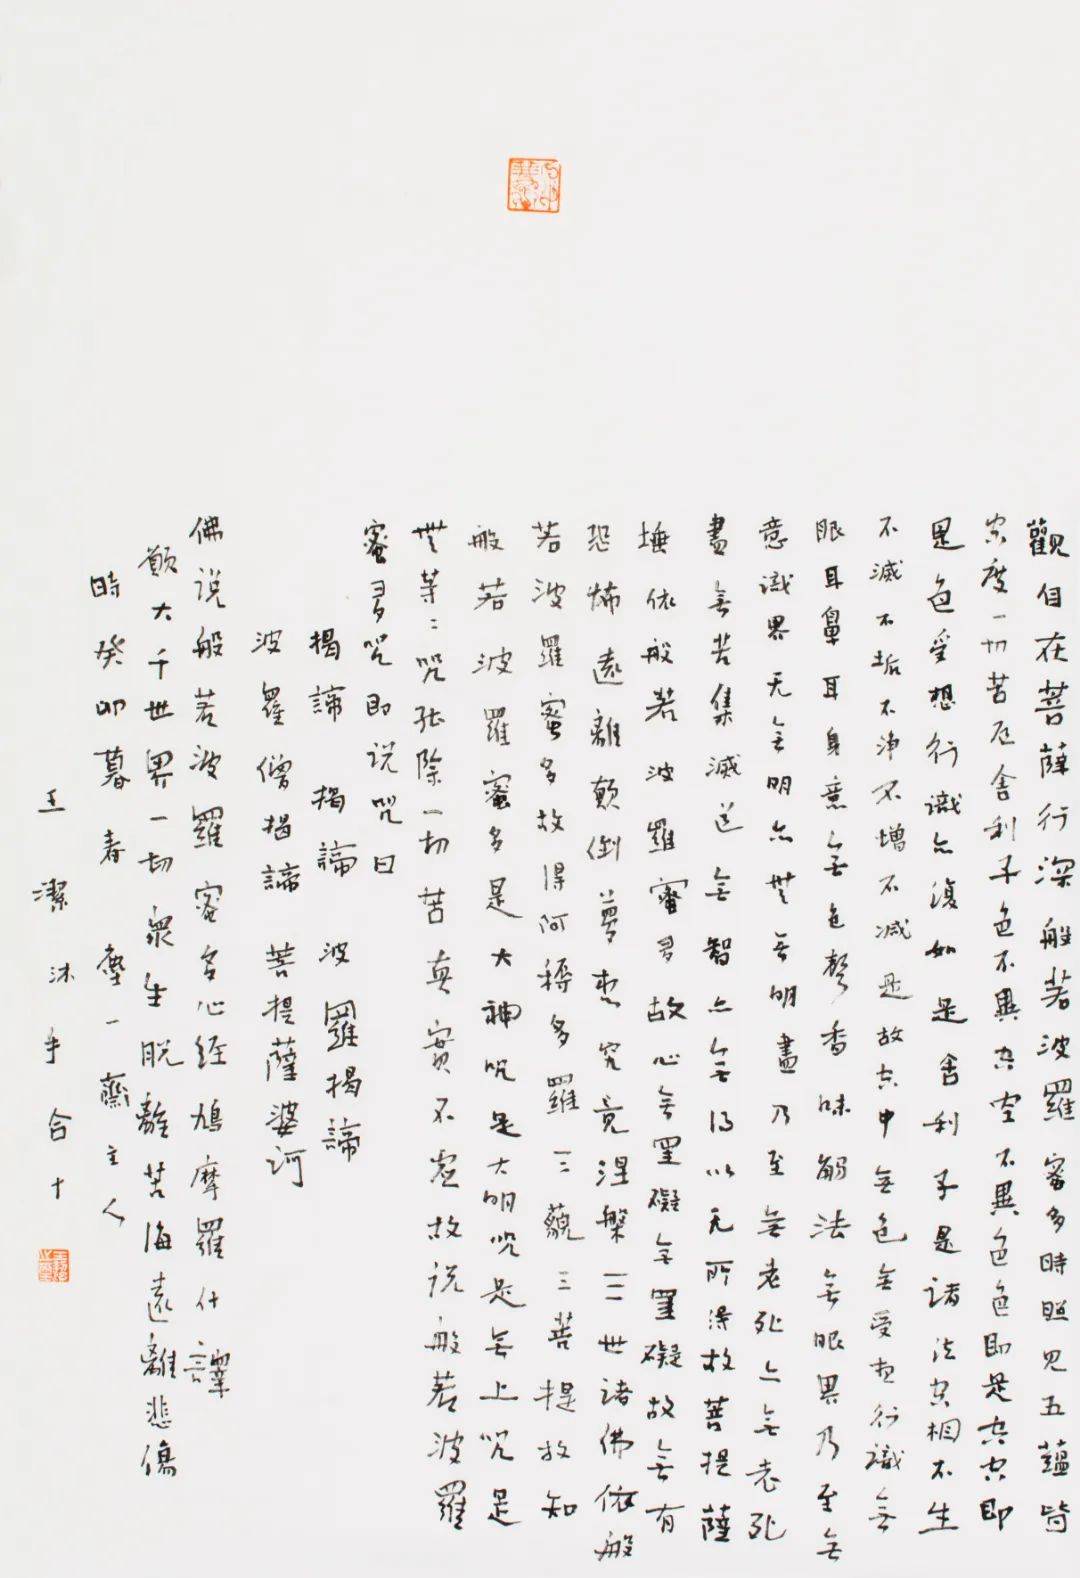 觀自在菩薩行深般若波羅蜜多時照見五蘊皆
空度一切苦厄舍利子色不異空空不異色色即是空空即
是色受想行識亦復如是舍利子是諸法空相不生
不滅不垢不淨不增不减是故空中無色無受想行識無
眼耳鼻耳身意無色聲香味觸法無眼界乃至無
意識界无無明亦無無明盡乃至無老死亦無老死
盡無苦集滅道無智亦無得以无所得故菩提薩
埵依般若波羅蜜多故心無罣礙無罣礙故無有
恐怖遠離顛倒夢想究竟涅槃三世諸佛依般
若波羅蜜多故得阿耨多羅三藐三菩提故知
般若波羅蜜多是大神咒是大明咒是無上咒是
無等等咒能除一切苦真實不虛故说般若波羅
蜜多咒即说咒曰
揭諦 揭諦 波羅揭諦
波羅僧揭諦 菩提薩婆訶
佛说般若波羅蜜多心經鳩摩羅什譯
願大千世界一切衆生脱離苦海遠離悲傷
時癸卯暮春 塵一齋主人
王潔沐手合十